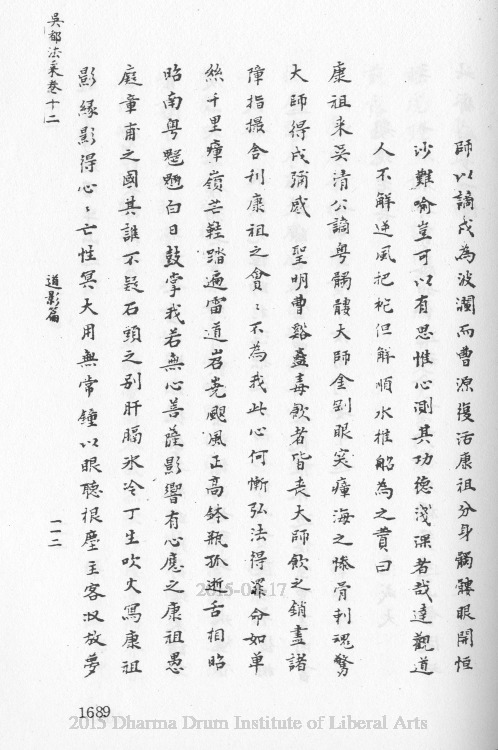 師以謫戍為波瀾而曹源復活康祖分身髑髏眼開恒
沙難喻豈可以有思惟心測其功德淺深者哉達觀道
人不解逆風把柁但解順水推船為之贊曰
康祖来奚清公謫粵髑髏大師金剛眼突瘴海之慘骨刲魂驚
大師得戍彌感聖明曹谿蠱毒飲者皆喪大師飲之銷盡諸
障指撮舍利康祖之貪〻不為我此心何慚弘法得罪命如單
絲千里瘴嶺芒鞋踏遍雷道岩嶤颶風正高缽瓶孤逝舌相昭
昭南粵魍魎白日鼓掌我若無心菩薩影響有心應之康祖愚
庭章甫之國其誰不疑石頭之別肝腸氷冷丁生吹火寫康祖
影緣影得心〻亡性冥大用無常鍾以眼聽根塵主客汝放夢
吳都法乘卷十二
道影篇
一一二
1689
2015-04-17
2015 Dharma Drum Institute of Liberal Arts